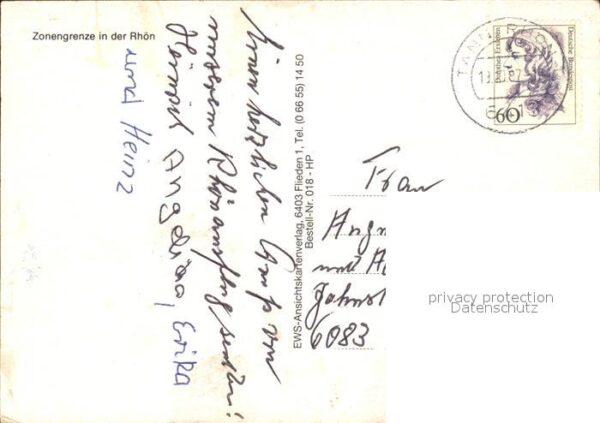 Zonengrenze in der Rhön
Einen herzlichen Gruß von
unserem Rhönausflug senden!
Heinrich Angelika, Erika
und Heinz
EWS-Ansichtskartenverlag, 6403 Flieden 1, Tel. (0 66 55) 14 50
Bestell-Nr. 018 - HP
Deutsche Bundespost
Dorothea Erxleben
60
TANN
Frau
und
6083
privacy protection
Datenschutz